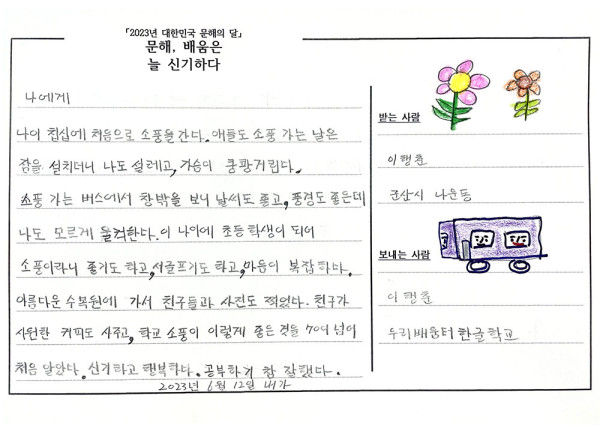 「2023년 대한민국 문해의 달」
문해, 배움은
늘 신기하다
나에게
나이 칠십에 처음으로 소풍을 간다. 애들도 소풍 가는 날은
잠을 설치더니 나도 설레고, 가슴이 쿵쾅거린다.
소풍 가는 버스에서 창밖을 보니 날씨도 좋고, 풍경도 좋은데
나도 모르게 울컥한다. 이 나이에 초등학생이 되어
소풍이라니 좋기도 하고, 서글프기도 하고, 마음이 복잡하다.
아름다운 수목원에 가서 친구들과 사진도 찍었다. 친구가
시원한 커피도 사주고, 학교 소풍이 이렇게 좋은 것을 70이 넘어
처음 알았다. 신기하고 행복하다. 공부하기 참 잘했다.
2023년 6월 12일 내가
받는 사람
이행춘
군산시 나운동
보내는 사람
이행춘
우리배움터한글학교